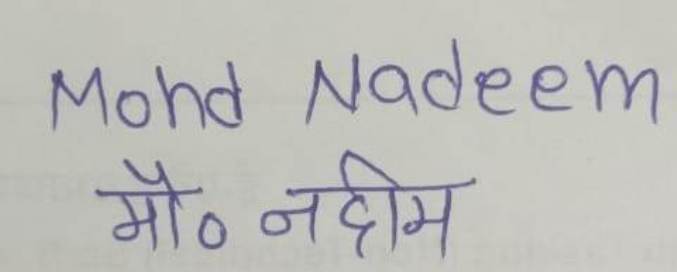 Mohd Nadeem
मौ० नदीम